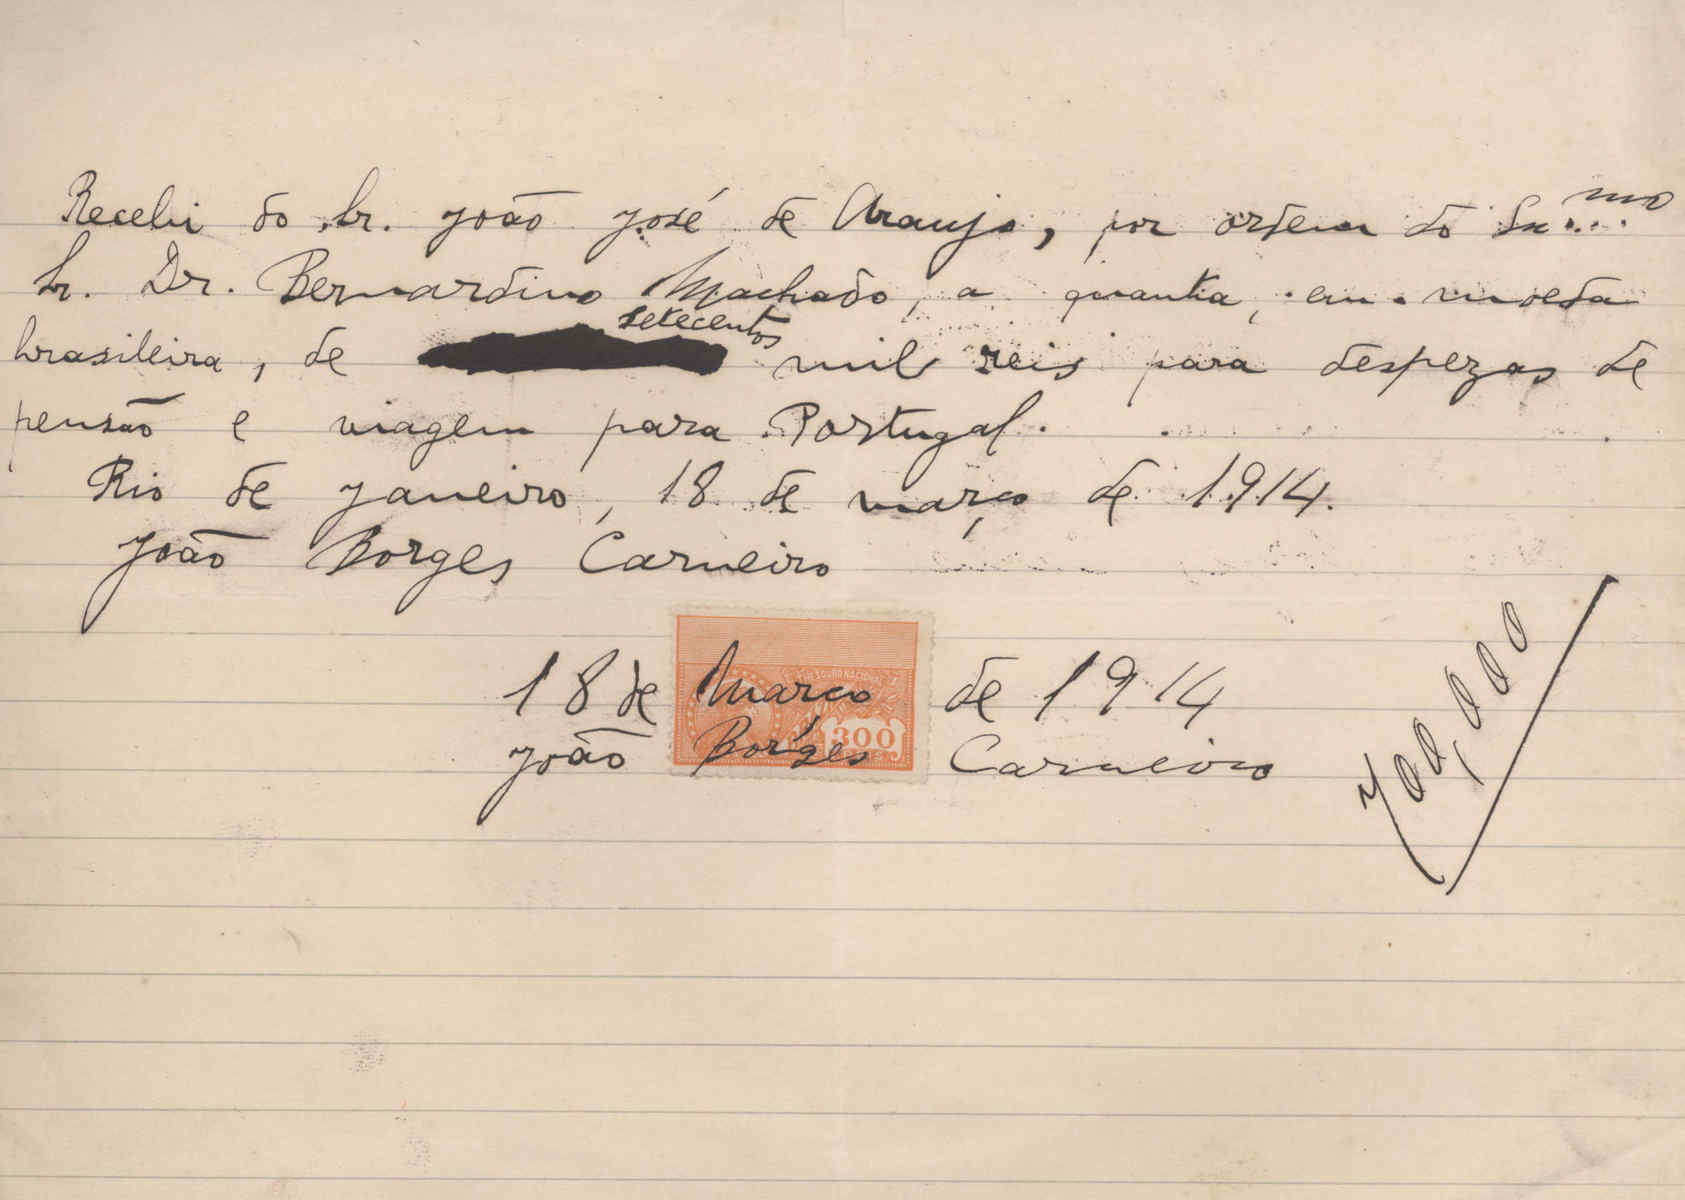 Recebi do Sr. João José de Araujo, por ordem do Ex.mo
Sr. Dr. Bernardino Machado, a quantia, em moeda
setecentos
brasileira, de mil reis para despezas de
pensão e viagem para Portugal.
Rio de Janeiro, 18 de março de 1914.
João Borges Carneiro
THESOURO NACIONAL
18 de Março de 1914
300
João Borges Carneiro
700,000